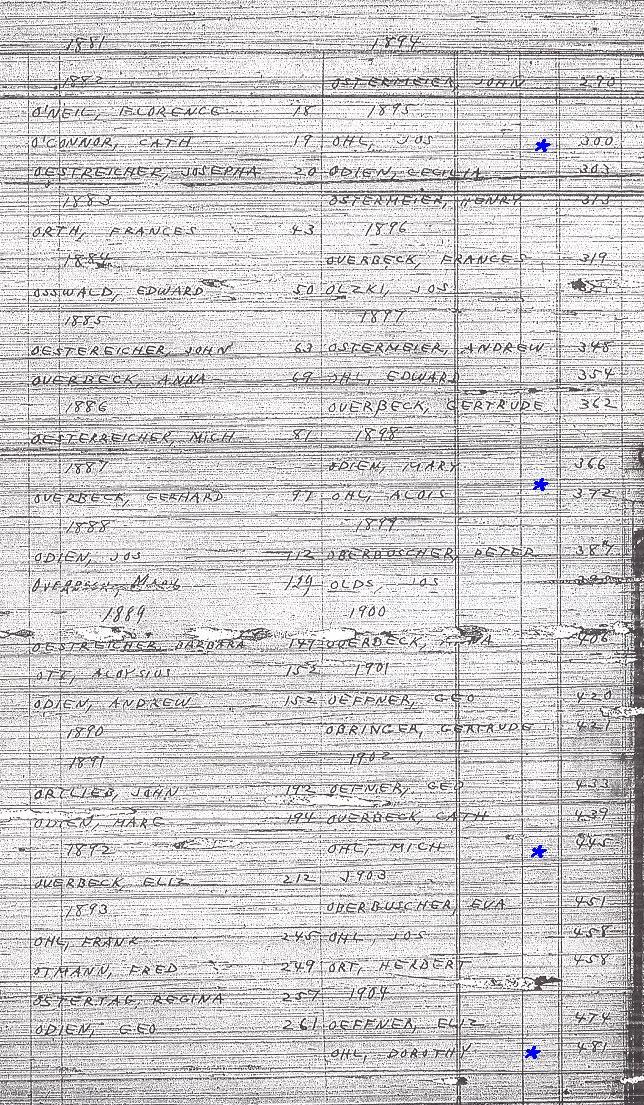 1881
1882
O'NEIL, FLORENCE 18
O'CONNOR, CATH 19
OESTREICHER, JOSEPHA 20
1883
ORTH, FRANCES 43
1884
OSSWALD, EDWARD 50
1885
OESTEREICHER, JOHN 63
OVERBECK, ANNA 69
1886
OESTERREICHER, MICH 81
1887
OVERBECK, GERHARD 97
1888
ODIEN, JOS 112
OVERBECK, MARY 129
1889
OESTREICHER, BARBARA 147
OTT, ALOYSIUS 152
ODIEN, ANDREW 152
1890
1891
ORTLIEB, JOHN 192
ODIEN, MARG 194
1892
OVERBECK, ELIZ 212
1893
OHL, FRANK 245
OTMANN, FRED 249
OSTERTAG, REGINA 257
ODIEN, GEO 261
1894
OSTERMEIER, JOHN 290
1895
OHL, JOS 300
ODIEN, CECILIA 303
OSTERMEIER, HENRY 315
1896
OVERBECK, FRANCES 319
OLZKI, JOS
1897
OSTERMEIER, ANDREW 348
OHL, EDWARD 354
OVERBECK, GERTRUDE 362
1898
ODIEN, MARY 366
OHL, ALOIS 372
1899
OBERBUSCHER, PETER 387
OLDS, JOS
1900
OVERBECK, 406
1901
OEFFNER, GEO 420
OBRINGER, GERTRUDE 421
1902
OEFNER, GEO 433
OVERBECK, CATH 439
OHL, MICH 445
1903
OBERBUSCHER, EVA 451
OHL, JOS 458
ORT, HERBERT 458
1904
OEFFNER, ELIZ 474
OHL, DOROTHY 481